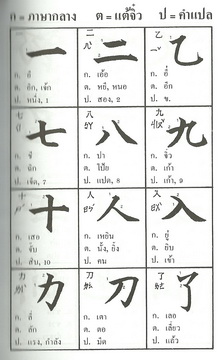 ก = ภาษากลาง ต = แต้จิ๋ว ป = คำแปล
一 二 乙
ก. อี ก. เอ้อ ก. อี่
ต. อิก, เจ็ก ต. หยี่, หนอ ต. อิก
ป. หนึ่ง, 1 ป. สอง, 2 ป. ข.
七 八 九
ก. ชี ก. ปา ก. จิ่ว
ต. ฉิก ต. โป๊ย ต. เก้า
ป. เจ็ด, 7 ป. แปด, 8 ป. เก้า, 9
十 人 入
ก. เสอ ก. เหยิน ก. ยู่
ต. จั๊บ ต. นั้ง, ยิ้ง ต. ยิบ
ป. สิบ, 10 ป. คน ป. เข้า
力 刀 了
ก. ลี่ ก. เตา ก. เลอ
ต. ลัก ต. ตอ ต. เลี่ยว
ป. แรง, กำลัง ป. มีด ป. แล้ว